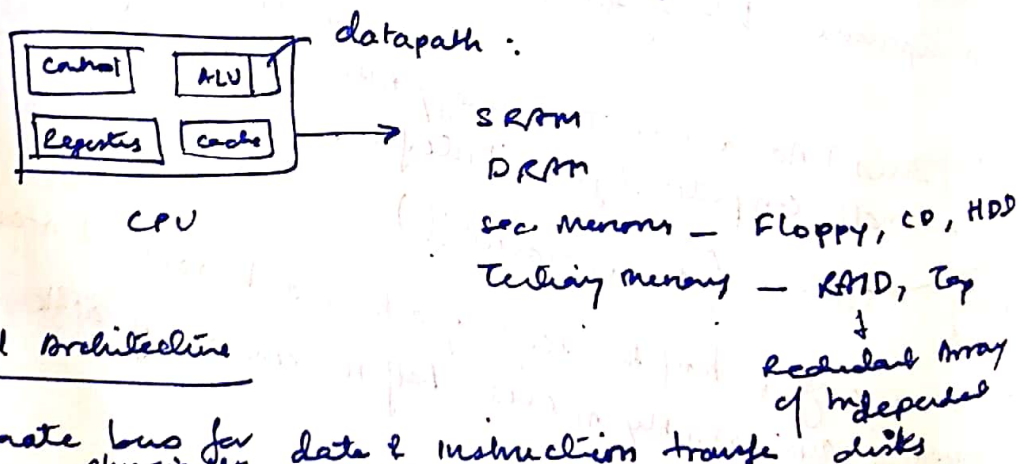 datapath :
Control ALU
Registers Cache
CPU
SRAM
DRAM
Sec Memory – Floppy, CD, HDD
Tertiary memory – RAID, Tap
Redudant Array
of Independed
disks
l Architecture
rate bus for data & instruction transfe